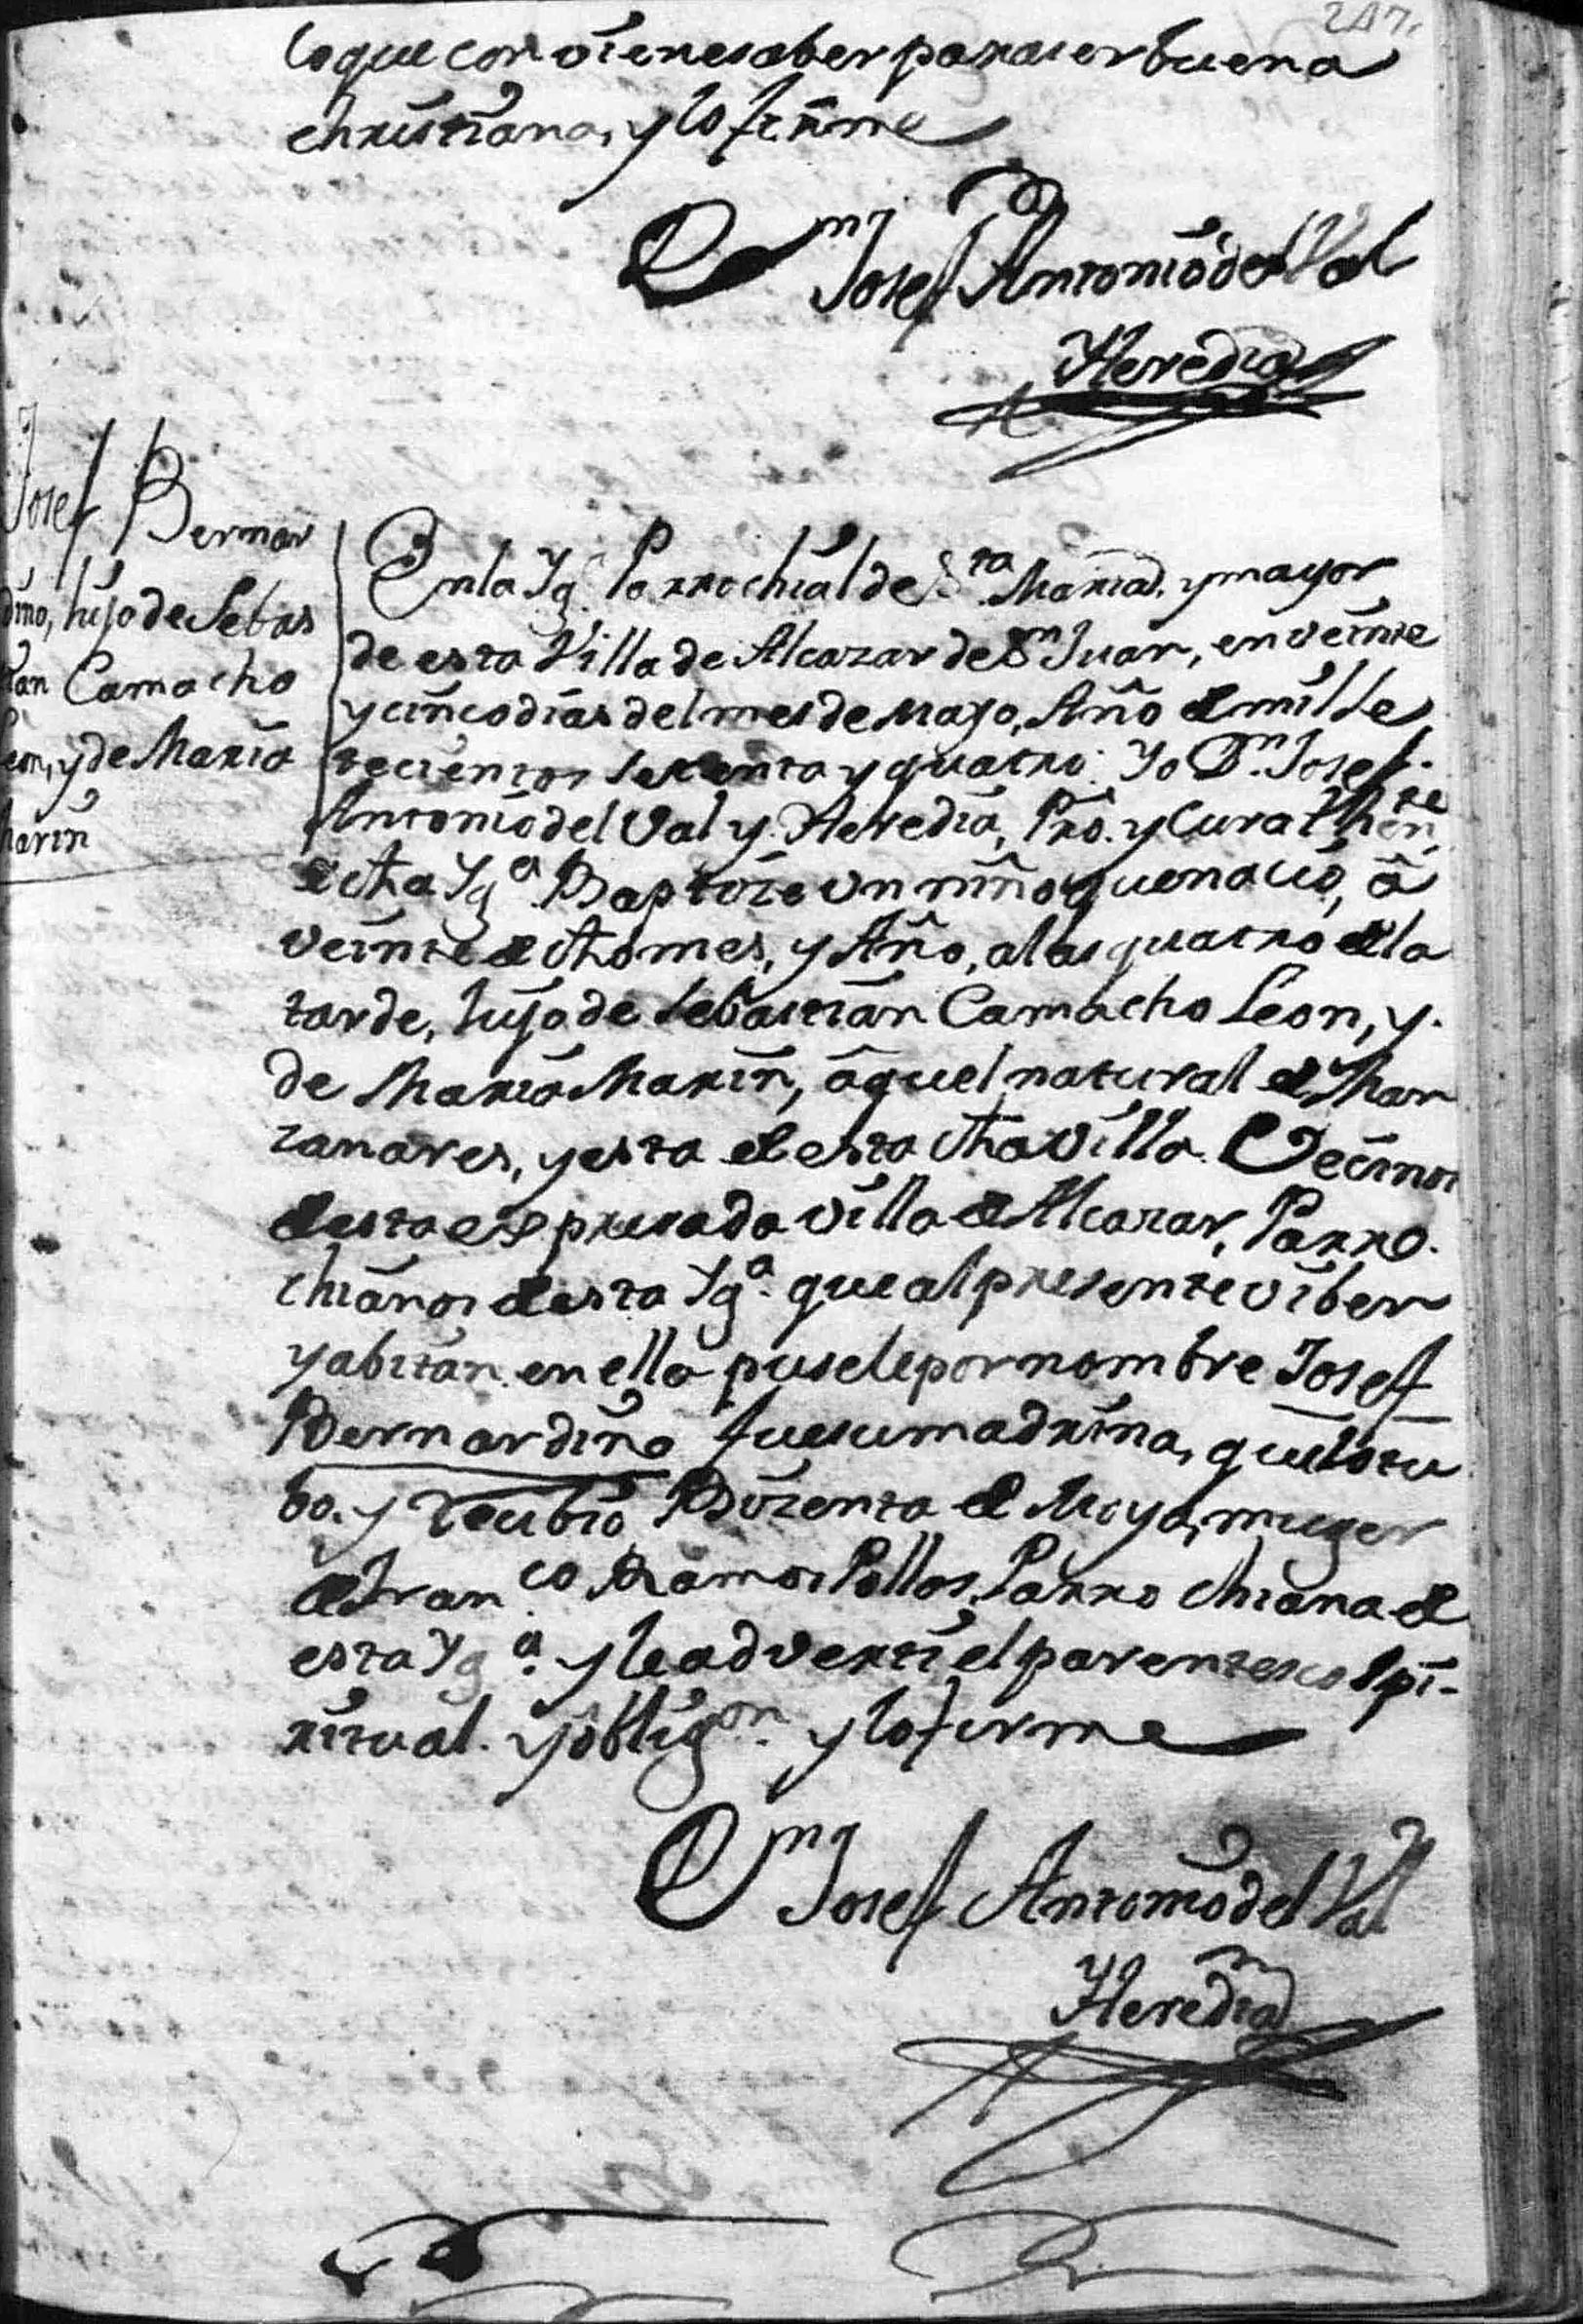 247.
lo que conviene saber para ser buena
christiana, y lo firme
Dn Josef Antonio del Val
Heredia
Josef Bernar
dino, hijo de Sebas
tian Camacho
Leon, y de Maria
Marin
En la Yg.ª Parrochial de S.ta Maria, y mayor
de esta Villa de Alcazar de Sn Juan, en veinte
y cinco dias del mes de mayo, Año de mil se
tecientos setenta y quatro. Yo Dn. Josef
Antonio del Val y Heredia, Pro. y Cura Then.te
de dha Yg.ª Baptize un niño que nacio, â
veinte de dho mes, y Año, a las quatro de la
tarde, hijo de Sebastian Camacho Leon, y
de Maria Marin, âquel natural de Man
zanares, y esta de esta dha villa. Vecinos
de esta expresada villa de Alcazar, Parro
chianos de esta Yg.ª que al presente viben
y abitan en ella pusele por nombre Josef
Bernardino fue su madrina, que lo tu
bo. y recibio Vizenta de Moya, muger
de Fran.co Ramos Pollos, Parrochiana de
esta Yg.ª y le adverti el parentesco spi-
ritual. y oblig.on y lo firme
Dn Josef Antonio del Val
y Heredia